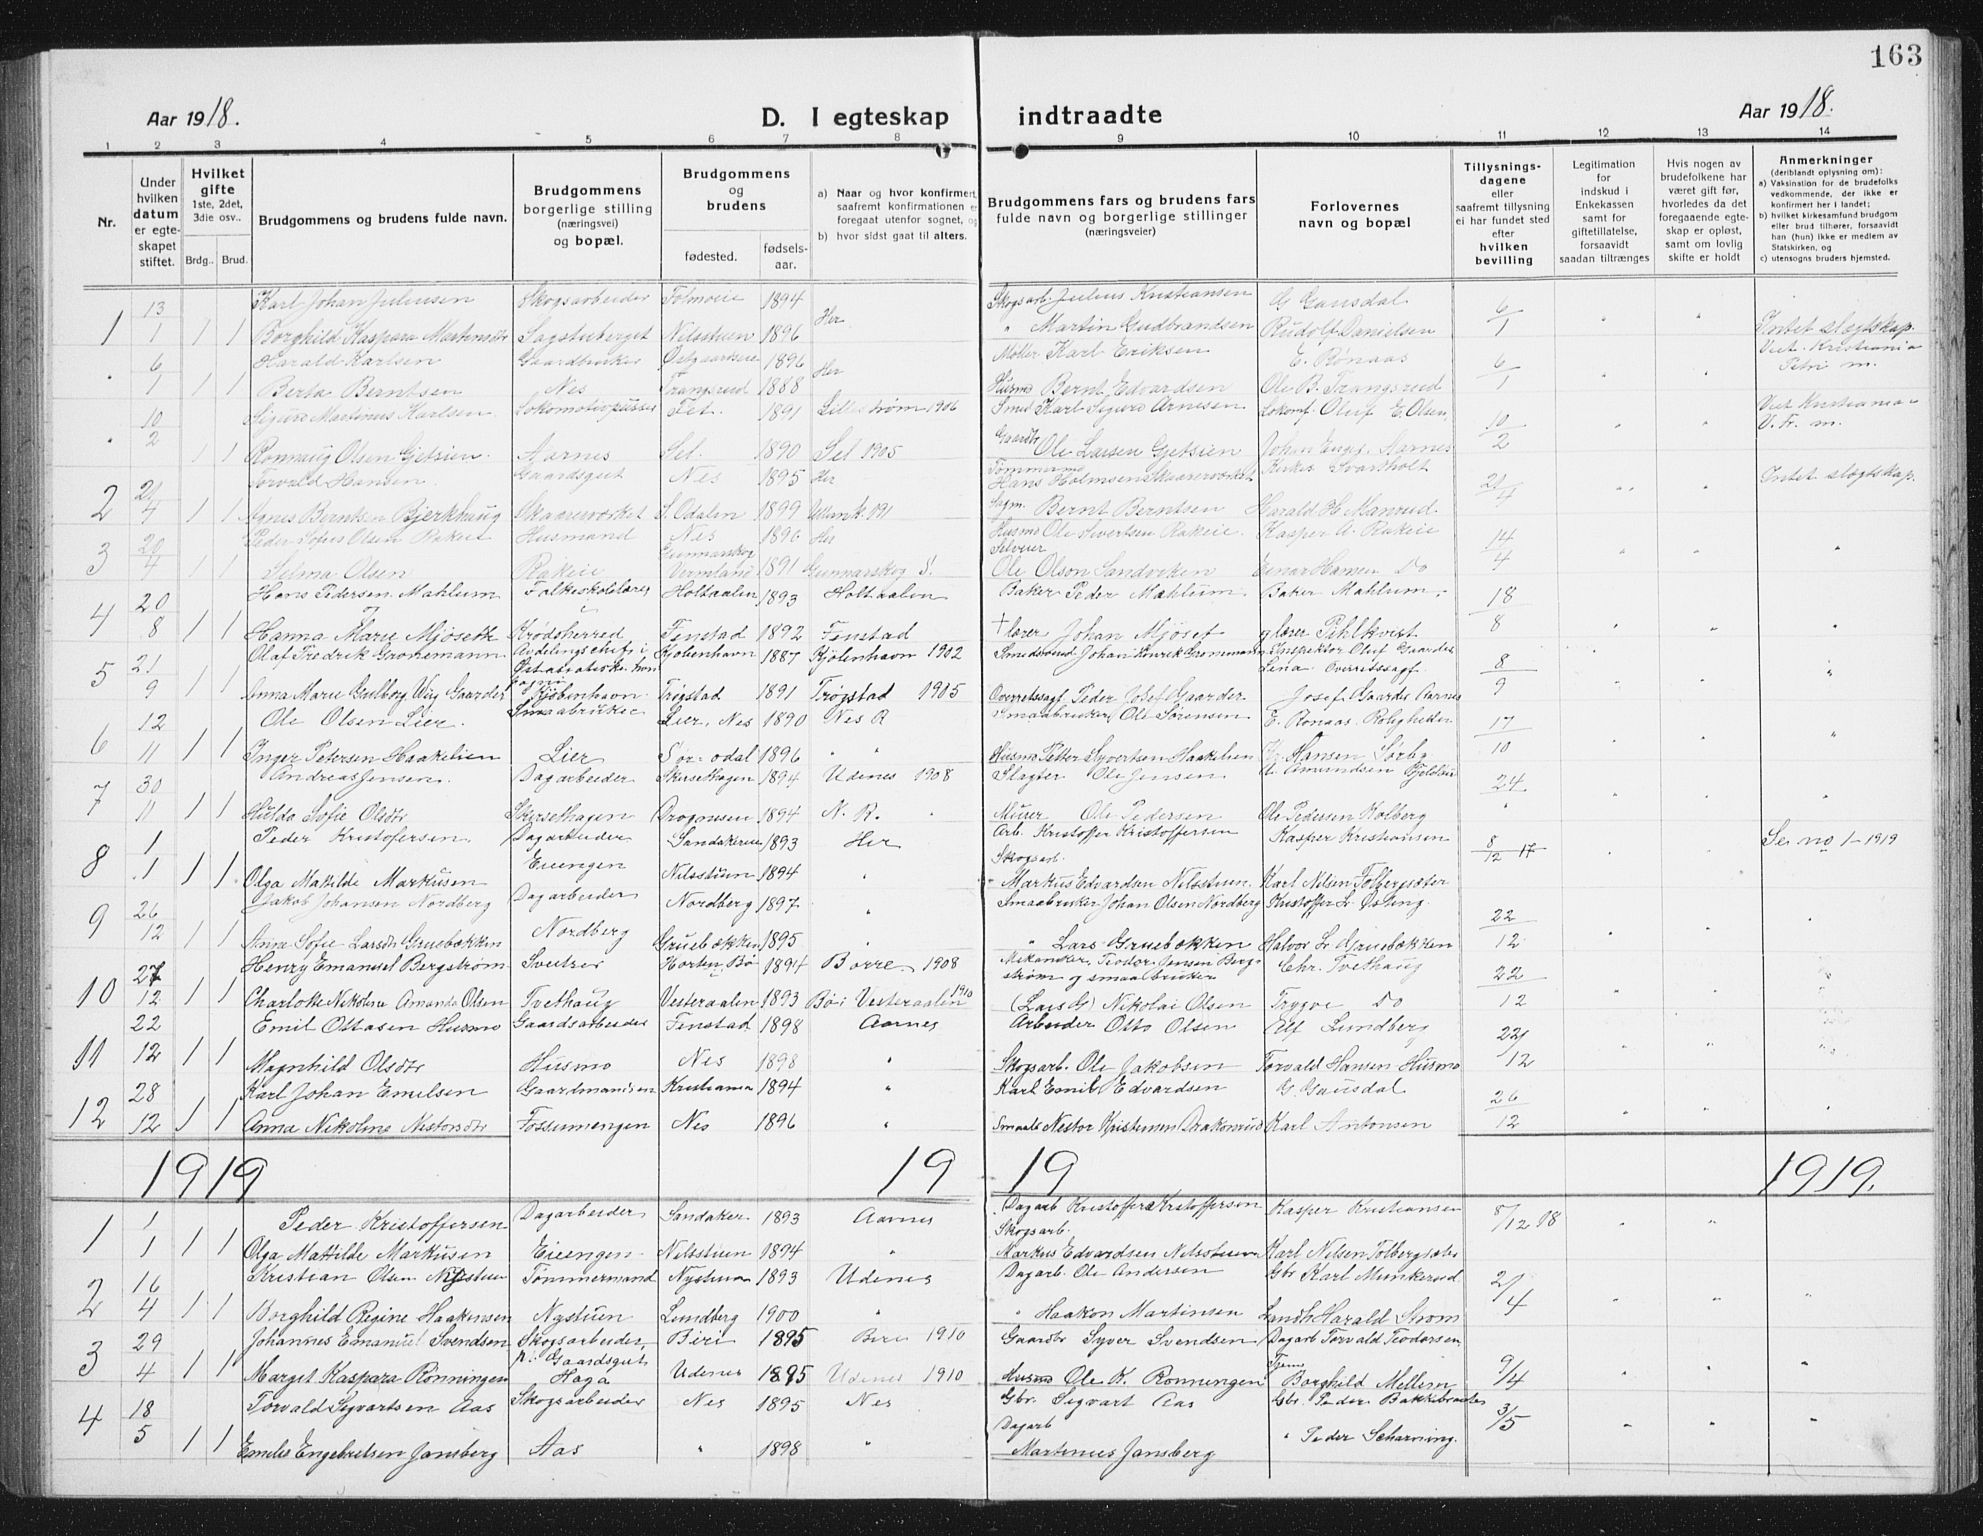 163
Aar 1918.
D. I egteskap indtraadte
Aar 1918.
1 2 3 4 5 6 7 8 9 10 11 12 13 14
Nr.
Under hvilken datum er egteskapet stiftet.
Hvilket gifte 1ste, 2det, 3die osv..
Brdg.. Brud.
Brudgommens og brudens fulde navn.
Brudgommens borgerlige stilling (næringsvei) og bopæl.
Brudgommens og brudens
fødested. fødsels-aar.
a) Naar og hvor konfirmert, saafremt konfirmationen er foregaat utenfor sognet, og
b) hvor sidst gaat til alters.
Brudgommens fars og brudens fars fulde navn og borgerlige stillinger (næringsveier)
Forlovernes navn og bopæl
Tillysnings-dagene eller saafremt tillysning ei har fundet sted efter hvilken bevilling
Legitimation for indskud i Enkekassen samt for giftetillatelse, forsaavidt saadan tiltrænges
Hvis nogen av brudefolkene har været gift før, hvorledes da det foregaaende egteskap er opløst, samt om lovlig skifte er holdt
Anmerkninger (deriblandt oplysning om):
a) Vaksination for de brudefolks vedkommende, der ikke er konfirmert her i landet;
b) hvilket kirkesamfund brudgom eller brud tilhører, forsaavidt han (hun) ikke er medlem av Statskirken, og
c) utensogns bruders hjemsted.
13 Karl Johan Juliussen Skogsarbeider 1894 Her Skogsarb. Julius Kristiansen G Gausdal 6/1
1 1 1 1 Borghild Kaspara Martinsdtr Sagstuberget Nilsstuen 1896 " Martin Gudbrandsen Rudolf Danielsen " " Intet slegtskap.
6 Harald Karlsen Gaardbruker 1896 Her Møller Karl Eriksen E. Rønaas 6/1 Viet Kristiania
" 1 1 1 Berta Berntsen Nes Trangsrud 1888 Husmd Bernt Edvardsen Ole B. Trangsrud " " Petri m.
10 Sigurd Martinus Karlsen Lokomotivpusser Fet. 1891 Lillestrøm 1906 Smed Karl Sigurd Arnesen Lokomf. Oluf E. Olsen, 10/2 Viet Kristiania
" 2 1 1 Rønnaug Olsen Gjetsien. Aarnes Sel. 1890 Sel 1905 Gaardbr Ole Larsen Gjetsien Johan Aarnes " " V. Fr. m.
21 Torvald Hansen. Gaardsgut Nes 1895 Her Tømmermd Hans Holmsen Skaareverket Kirkes Svartholt 21/4 Intet slegtskap.
2 4 1 1 Agnes Berntsen Bjerkhaug Skaareverket S. Odalen 1899 Ullensk. 191 Sagm. Bernt Berntsen Harald H Manrud. " "
20 Peder Olsen Rakeie Husmand Nes 1890 Her Husmd Ole Sivertsen Rakeie. Kasper A. Rakeie 14/4
3 4 1 1 Selma Olsen Rakeie Gunnarskog Vermland 1891 Gunnarskog S. Ole Olson Sandviken Einar Hansen Do " " "
20 Hans Pedersen Mahlum Folkeskolelærer Holtaalen 1893 Holtaalen Baker Peder Mahlum. Baker Mahlum. 18/8
4 8 1 1 og Hanna Marie Mjøseth Krødsherred Fenstad 1892 Fenstad † lærer Johan Mjøset og lærer Pihlkvist " " "
21 Olaf Fredrik Gronemann Avdelingschef i Østasiatiske kompagni Kjøbenhavn 1887 Kjøbenhavn 1902 Smedsvend Johan Henrik Gronemann Inspektør Oluf Gaarder Lena Overretssagf. 8/9
5 9 1 1 Anna Marie Gulborg Wiig Gaarder Kjøbenhavn. Trøgstad 1891 Trøgstad 1905 Overretssagf. Peder Josef Gaarder Josef Gaarder Aarnes " " "
12 Ole Olsen Lier. Smaabruker Lier, Nes 1890 Nes R Smaabruker Ole Sørensen E. Rønaas. Roligheden 17/10
6 11 1 1 Inger Petersen Haakelien Lier Sør-odal 1896 " " Husmd Petter Syvertsen Haakelien Hansen Sørby " " "
30 Andreas Jensen. Dagarbeider Skirsethagen 1894 Udenes 1908 Slagter Ole Jensen Amundsen 24/"
7 11 1 1 Hulda Sofie Olsdtr Skirsethagen Drognesen 1894 N. R. Murer Ole Pedersen Ole Pedersen Kolberg " " "
1 Peder Kristofersen Dagarbeider Sandakeren 1893 Her Arb. Kristoffer Kristoffersen Kasper Kristiansen 8/12 17 Se no 1-1919
8 1 1 1 Olga Matilde Markusen Eiengen Nilsstuen 1894 " Skogsarb. Markus Edvardsen Nilsstuen. Karl Nilsen Tolbergsæter " "
26 Jakob Johansen Nordberg Dagarbeider Nordberg 1897 " Smaabruker Johan Olsen Nordberg Kristoffer L. Østeng. 22/12
9 12 1 1 Anne Sofie Larsdtr Gruebækken Nordberg Gruebækken 1895 " " Lars Gruebækken Halvor L. Gruebækken " " "
27 Henry Emanuel Bergstrøm Sveitser Horten Bø 1894 Borre 1908 Mekaniker Teodor Jensen Bergstrøm og smaabruker Chr. Tvethaug 22/12
10 12 1 1 Charlotte Nikoline Amanda Olsen Tvethaug Vesteraalen 1893 Bø i Vesteraalen 1910 (Lars G) Nikolai Olsen Trygve Do " " "
22 Emil Ottosen Husmo Gaardsarbeider Fenstad 1898 Aarnes Arbeider Otto Olsen Alf Lundberg 22/12
11 12 1 1 Magnhild Olsdtr Husmo Nes 1898 " Skogsarb. Ole Jakobsen Torvald Hansen Husmo " " "
28 Karl Johan Emilsen Gaardmandsen Kristiania 1894 " Karl Emil Edvardsen G. Gausdal 26/12
12 12 1 1 Anna Nikoline Nestorsdtr Fossumengen Nes 1896 " Smaabr Nestor Kristensen Drakerud Karl Antonsen " " "
1919 19 19 1919.
1 Peder Kristoffersen Dagarbeider Sandaker 1893 Aarnes Dagarb Kristoffer Kristoffersen Kasper Kristiansen 8/12 18
1 1 1 1 Olga Matilde Markusen Eiengen Nilsstuen 1894 " Skogsarb. Markus Edvardsen Nilsstuen Karl Nilsen Tolbergsæter " "
16 Kristian Olsen Nystuen Tømmermand Nystuen 1893 Udenes Dagarb. Ole Andersen Gbr Karl Munkerud 2/4
2 4 1 1 Borghild Regine Haakensen Nystuen Lundberg 1900 " " Haakon Martinsen Landh. Harald Strøm " " "
29 Johannes Emanuel Svendsen Skogsarbeider, Biri 1895 Biri 1910 Gaardbr Syver Svendsen Dagarb Torvald Teodorsen 9/4
3 4 1 1 Margit Kaspara Rønningen Gaardsgut Haga Udenes 1895 Udenes 1910 Husmd Ole K. Rønningen Tjene Borghild Mellem " " "
18 Torvald Sigvartsen Aas Skogsarbeider Nes 1895 Nes Gbr. Sigvart Aas Gbr. Peder Bakkebraaten 3/5
4 5 1 1 Emilie Engebretsen Jansberg Aas " 1898 " Dagarb Martinus Jansberg " Peder Scharning. " " "